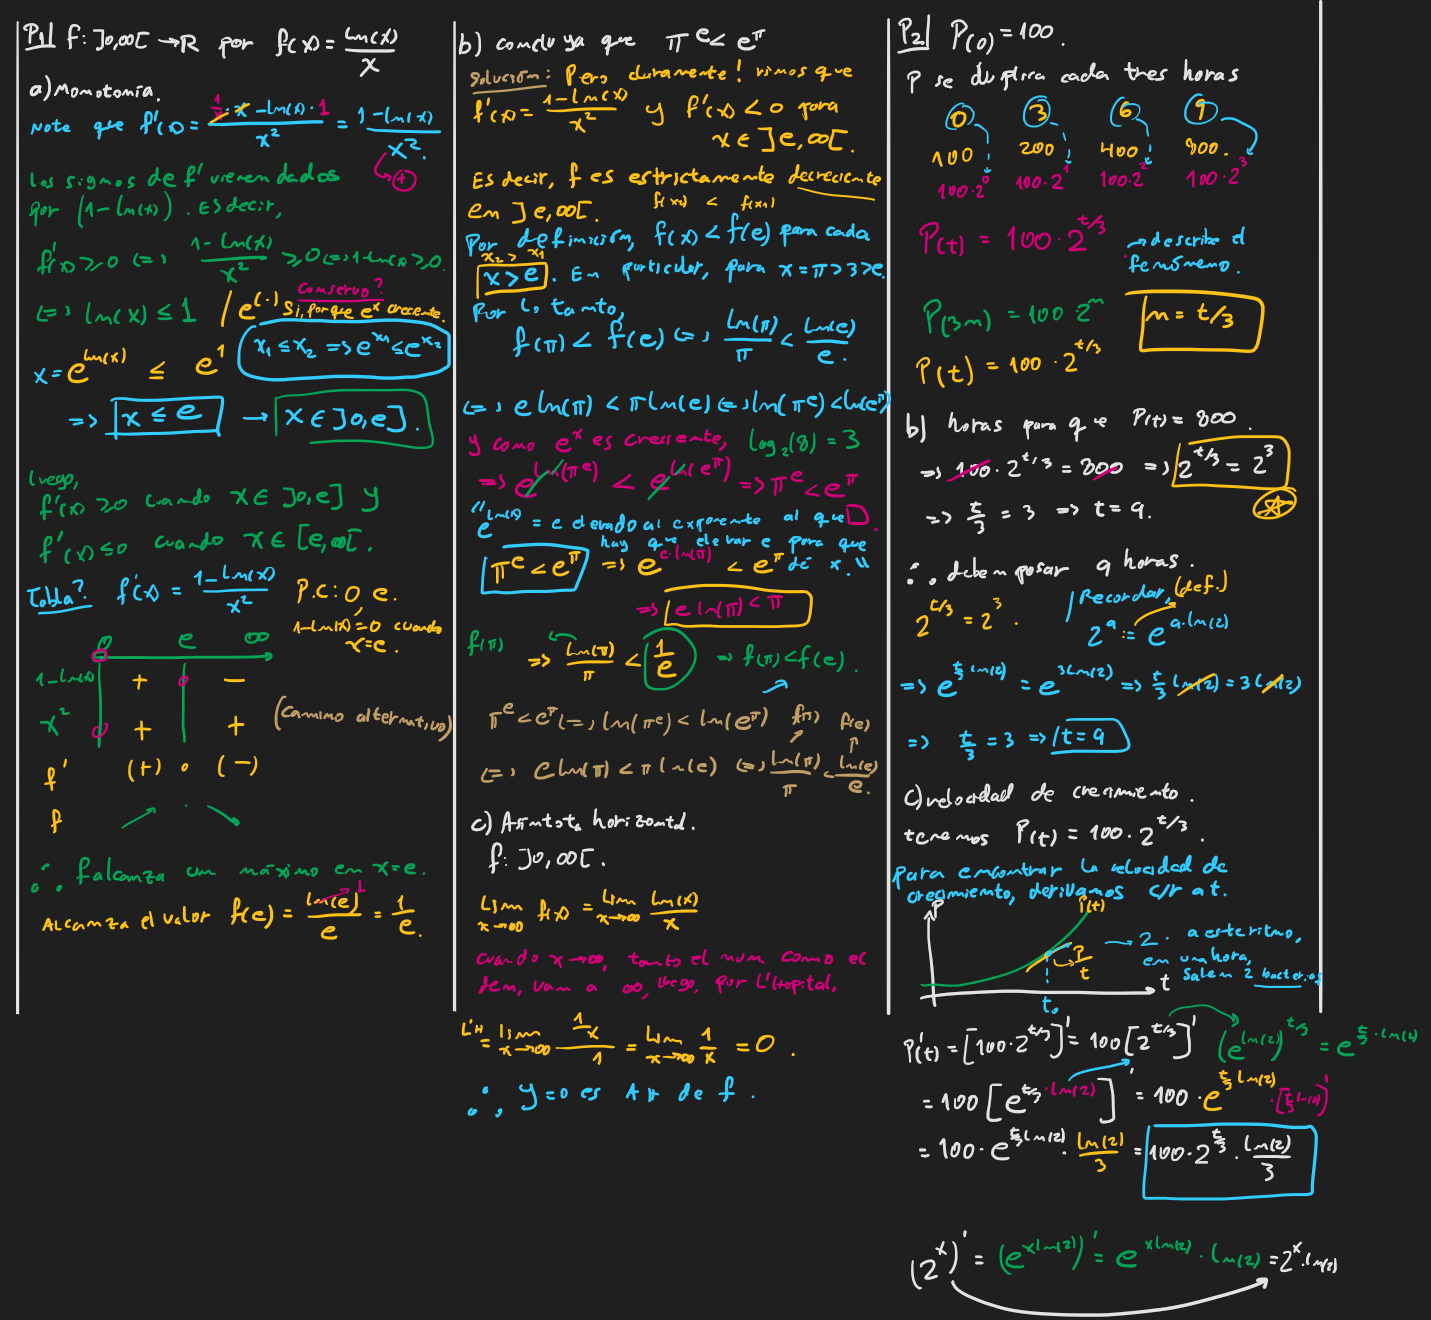 P1] f: ]0,∞[ → ℝ por f(x) = ln(x)/x
a) Monotonía.
Note que f'(x) = (1/x · x − ln(x) · 1)/x² = (1 − ln(x))/x².
(+)
Los signos de f' vienen dados
por (1 − ln(x)). Es decir,
f'(x) ≥ 0 (=) (1 − ln(x))/x² ≥ 0 (=) 1 − ln(x) ≥ 0.
(=) ln(x) ≤ 1 / e^(·)
conservo?
Si, porque e^x creciente.
x = e^ln(x) ≤ e^1
x₁ ≤ x₂ => e^x₁ ≤ e^x₂
=> x ≤ e → x ∈ ]0,e].
luego,
f'(x) ≥ 0 cuando x ∈ ]0,e] y
f'(x) ≤ 0 cuando x ∈ [e,∞[.
Tabla? f'(x) = (1 − ln(x))/x² P.C: 0, e.
1 − ln(x) = 0 cuando
x = e.
0 e ∞
1 − ln(x) + −
x² + +
(camino alternativo)
f' (+) 0 (−)
f
∴ f alcanza un máximo en x = e.
Alcanza el valor f(e) = ln(e)/e = 1/e.
1
b) concluya que π^e < e^π
Solución: Pero claramente! vimos que
f'(x) = (1 − ln(x))/x² y f'(x) < 0 para
x ∈ ]e,∞[.
Es decir, f es estrictamente decreciente
en ]e,∞[. f(x₂) < f(x₁)
Por definición, f(x) < f(e) para cada
x₂ > x₁
x > e. En particular, para x = π > 3 > e.
Por lo tanto,
f(π) < f(e) (=) ln(π)/π < ln(e)/e.
(=) e ln(π) < π ln(e) (=) ln(π^e) < ln(e^π)
y como e^x es creciente, log₂(8) = 3
=> e^ln(π^e) < e^ln(e^π) => π^e < e^π
"e^ln(x) = e elevado al exponente al que
hay que elevar e para que
dé x."
π^e < e^π => e^(e·ln(π)) < e^π
=> e ln(π) < π
f(π) => ln(π)/π < 1/e => f(π) < f(e).
π^e < e^π (=) ln(π^e) < ln(e^π) f(π) f(e)
(=) e ln(π) < π ln(e) (=) ln(π)/π < ln(e)/e.
c) Asíntota horizontal.
f: ]0,∞[.
Lim x→∞ f(x) = Lim x→∞ ln(x)/x
cuando x→∞, tanto el num como el
den, van a ∞, luego, por L'Hopital,
L'H = Lim x→∞ (1/x)/1 = Lim x→∞ 1/x = 0.
∴, y = 0 es AH de f.
P2] P(0) = 100.
P se duplica cada tres horas
0 3 6 9
100 200 400 800.
100·2⁰ 100·2¹ 100·2² 100·2³
P(t) = 100·2^(t/3) → describe el
fenómeno.
P(3n) = 100·2^n n = t/3
P(t) = 100·2^(t/3)
b) horas para que P(t) = 800.
=> 100·2^(t/3) = 800 => 2^(t/3) = 2³
=> t/3 = 3 => t = 9.
∴ deben pasar 9 horas.
2^(t/3) = 2³. / Recordar, (def.)
2^a := e^(a·ln(2))
=> e^(t/3 ln(2)) = e^(3 ln(2)) => t/3 ln(2) = 3 ln(2)
=> t/3 = 3 => t = 9
c) velocidad de crecimiento.
tenemos P(t) = 100·2^(t/3).
para encontrar la velocidad de
crecimiento, derivamos c/r a t.
P P(t)
→ 2. a este ritmo,
en una hora,
salen 2 bacterias
P/t
t
t₀
P'(t) = [100·2^(t/3)]' = 100[2^(t/3)]' (e^ln(2))^(t/3) = e^(t/3·ln(2))
= 100[e^(t/3·ln(2))]' = 100·e^(t/3 ln(2))·[t/3 ln(2)]'
= 100·e^(t/3 ln(2))·ln(2)/3 = 100·2^(t/3)·ln(2)/3
(2^x)' = (e^(x ln(2)))' = e^(x ln(2))·ln(2) = 2^x·ln(2)